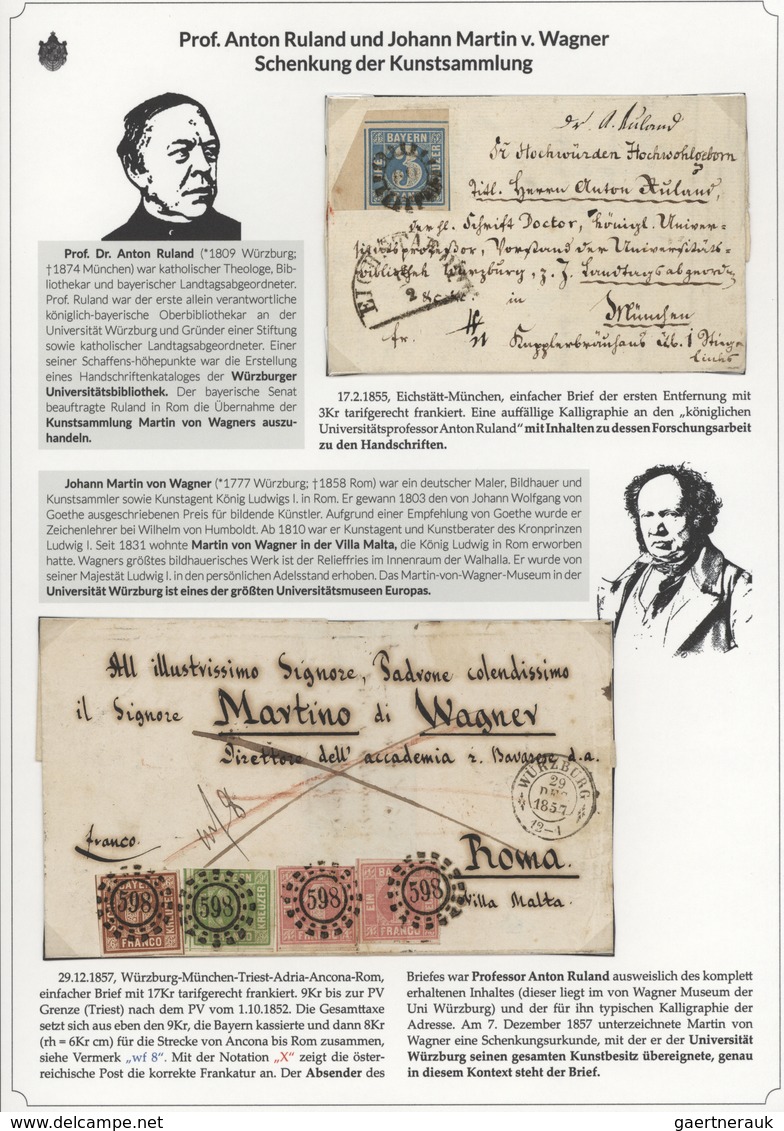 Prof. Anton Ruland und Johann Martin v. Wagner
Schenkung der Kunstsammlung
Prof. Dr. Anton Ruland (*1809 Würzburg;
†1874 München) war katholischer Theologe, Bib-
liothekar und bayerischer Landtagsabgeordneter.
Prof. Ruland war der erste allein verantwortliche
königlich-bayerische Oberbibliothekar an der
Universität Würzburg und Gründer einer Stiftung
sowie katholischer Landtagsabgeordneter. Einer
seiner Schaffens-höhepunkte war die Erstellung
eines Handschriftenkataloges der Würzburger
Universitätsbibliothek. Der bayerische Senat
beauftragte Ruland in Rom die Übernahme der
Kunstsammlung Martin von Wagners auszu-
handeln.
BAYERN
3
Dr. A. Ruland
Sr Hochwürden Hochwohlgeborn
Titl. Herrn Anton Ruland,
der hl. Schrift Doctor, königl. Univer-
sitätsprofessor, Vorstand der Universitäts-
bibliothek Würzburg, z. Z. Landtagsabgeord.
in
München
fr.
Knpplerbräuhaus üb. 1 Stiege
links
17.2.1855, Eichstätt-München, einfacher Brief der ersten Entfernung mit
3Kr tarifgerecht frankiert. Eine auffällige Kalligraphie an den „königlichen
Universitätsprofessor Anton Ruland“ mit Inhalten zu dessen Forschungsarbeit
zu den Handschriften.
Johann Martin von Wagner (*1777 Würzburg; †1858 Rom) war ein deutscher Maler, Bildhauer und
Kunstsammler sowie Kunstagent König Ludwigs I. in Rom. Er gewann 1803 den von Johann Wolfgang von
Goethe ausgeschriebenen Preis für bildende Künstler. Aufgrund einer Empfehlung von Goethe wurde er
Zeichenlehrer bei Wilhelm von Humboldt. Ab 1810 war er Kunstagent und Kunstberater des Kronprinzen
Ludwig I. Seit 1831 wohnte Martin von Wagner in der Villa Malta, die König Ludwig in Rom erworben
hatte. Wagners größtes bildhauerisches Werk ist der Relieffries im Innenraum der Walhalla. Er wurde von
seiner Majestät Ludwig I. in den persönlichen Adelsstand erhoben. Das Martin-von-Wagner-Museum in der
Universität Würzburg ist eines der größten Universitätsmuseen Europas.
All illustrissimo Signore, Padrone colendissimo
il Signore Martino di Wagner
Direttore dell' accademia r. Bavarese d.a.
WÜRZBURG
29
DEC
1857
12-1
franco.
wf 8
Roma.
Villa Malta.
598
598
598
598
FRANCO
KREUZER
EIN
29.12.1857, Würzburg-München-Triest-Adria-Ancona-Rom,
einfacher Brief mit 17Kr tarifgerecht frankiert. 9Kr bis zur PV
Grenze (Triest) nach dem PV vom 1.10.1852. Die Gesamttaxe
setzt sich aus eben den 9Kr, die Bayern kassierte und dann 8Kr
(rh = 6Kr cm) für die Strecke von Ancona bis Rom zusammen,
siehe Vermerk „wf 8“. Mit der Notation „X“ zeigt die öster-
reichische Post die korrekte Frankatur an. Der Absender des
Briefes war Professor Anton Ruland ausweislich des komplett
erhaltenen Inhaltes (dieser liegt im von Wagner Museum der
Uni Würzburg) und der für ihn typischen Kalligraphie der
Adresse. Am 7. Dezember 1857 unterzeichnete Martin von
Wagner eine Schenkungsurkunde, mit der er der Universität
Würzburg seinen gesamten Kunstbesitz übereignete, genau
in diesem Kontext steht der Brief.
gaertnerauk